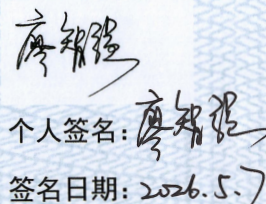 廖智强
个人签名：廖智强
签名日期：2026.5.7